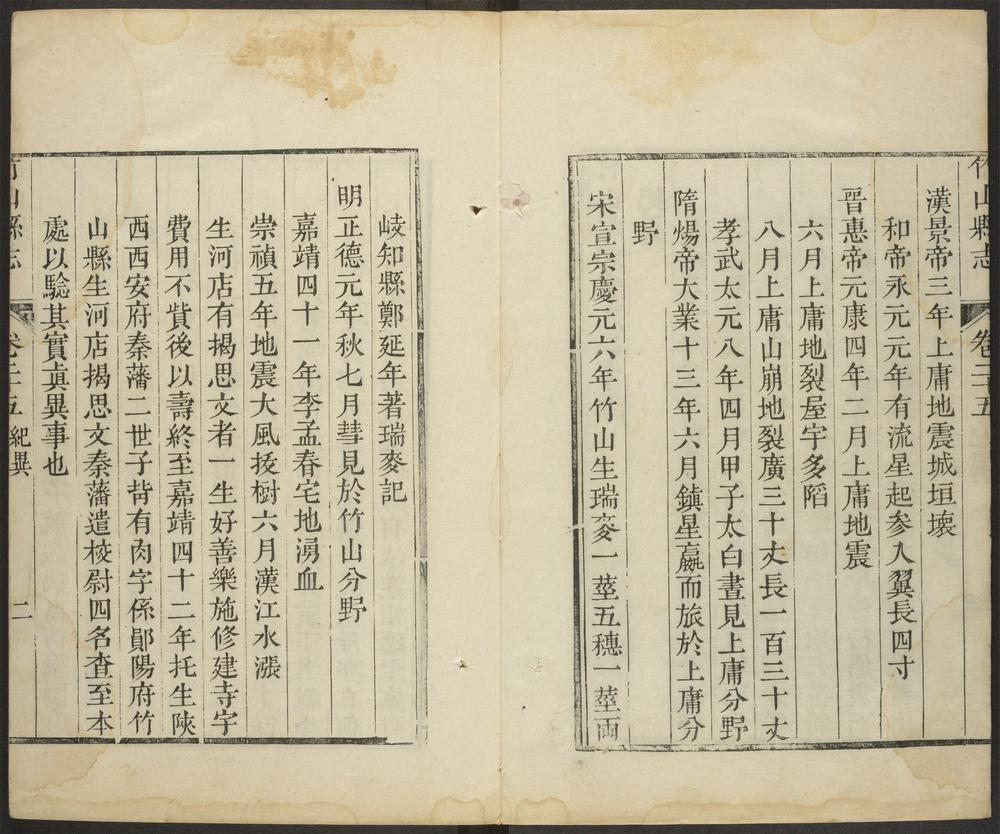 竹山縣志
卷二十五
漢景帝三年上庸地震城垣壞
和帝永元元年有流星起參入翼長四寸
晉惠帝元康四年二月上庸地震
六月上庸地裂屋宇多陷
八月上庸山崩地裂廣三十丈長一百三十丈
孝武太元八年四月甲子太白晝見上庸分野
隋煬帝大業十三年六月鎮星嬴而旅於上庸分
野
宋宣宗慶元六年竹山生瑞麥一莖五穗一莖兩
岐知縣鄭延年著瑞麥記
明正德元年秋七月彗見於竹山分野
嘉靖四十一年李孟春宅地湧血
崇禎五年地震大風拔樹六月漢江水漲
生河店有揭思文者一生好善樂施修建寺宇
費用不貲後以壽終至嘉靖四十二年托生陝
西西安府秦藩二世子背有肉字係鄖陽府竹
山縣生河店揭思文秦藩遣校尉四名查至本
處以驗其實眞異事也
竹山縣志
卷二十五 紀異
二